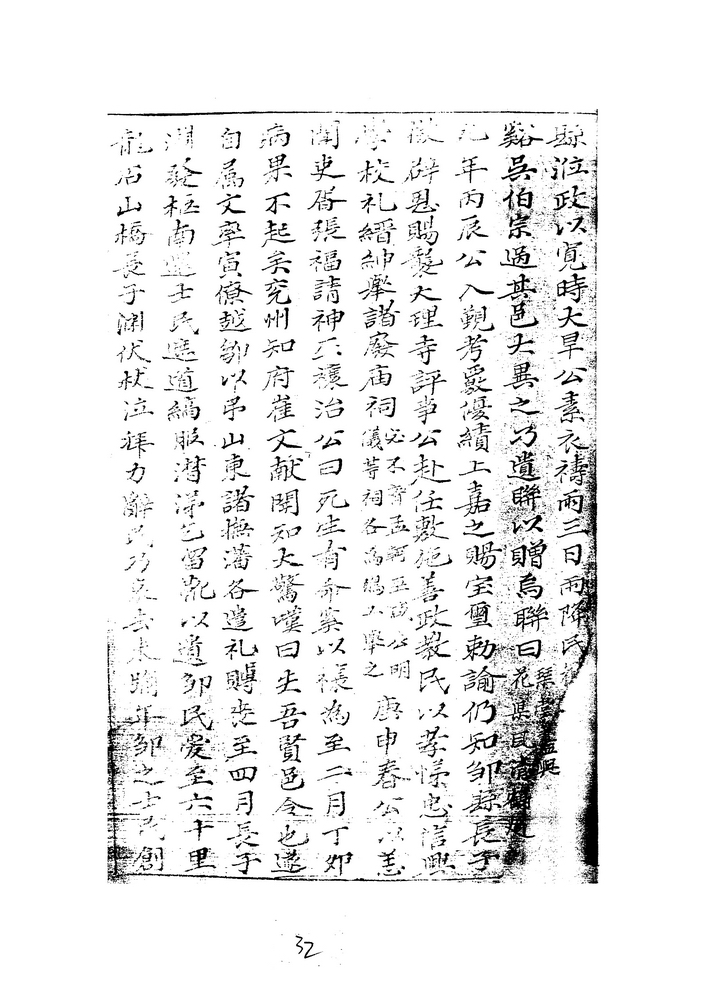 縣涖政以寛時大旱公素衣禱雨三日雨降民
谿吳伯宗過其邑大異之乃遺聯以贈焉聯曰花県民
元年丙辰公入覲考覈優績上嘉之賜宝璽勅諭仍知鄒縣長子
徵辟恩賜 大理寺評事公赴任敷施善政教民以孝悌忠信興
學校礼縉紳舉諸廢庙祠 庚申春公以恙
儀等祠各為 公明
聞吏胥張福請神 禳治公曰死生有命奚以禳為至二月丁夘
病果不起矣兖州知府崔文献聞知大驚嘆曰失吾賢邑令也遂
自属文率寅僚越鄒以吊山東諸撫藩各遣礼賻喪至四月長子
渊發柩南還士民遮道縞服潸涕乞留 以遺鄒民爰至六十里
龍石山橋長子渊伏杖泣拜力辭民乃哀去 年鄒之士民創
32